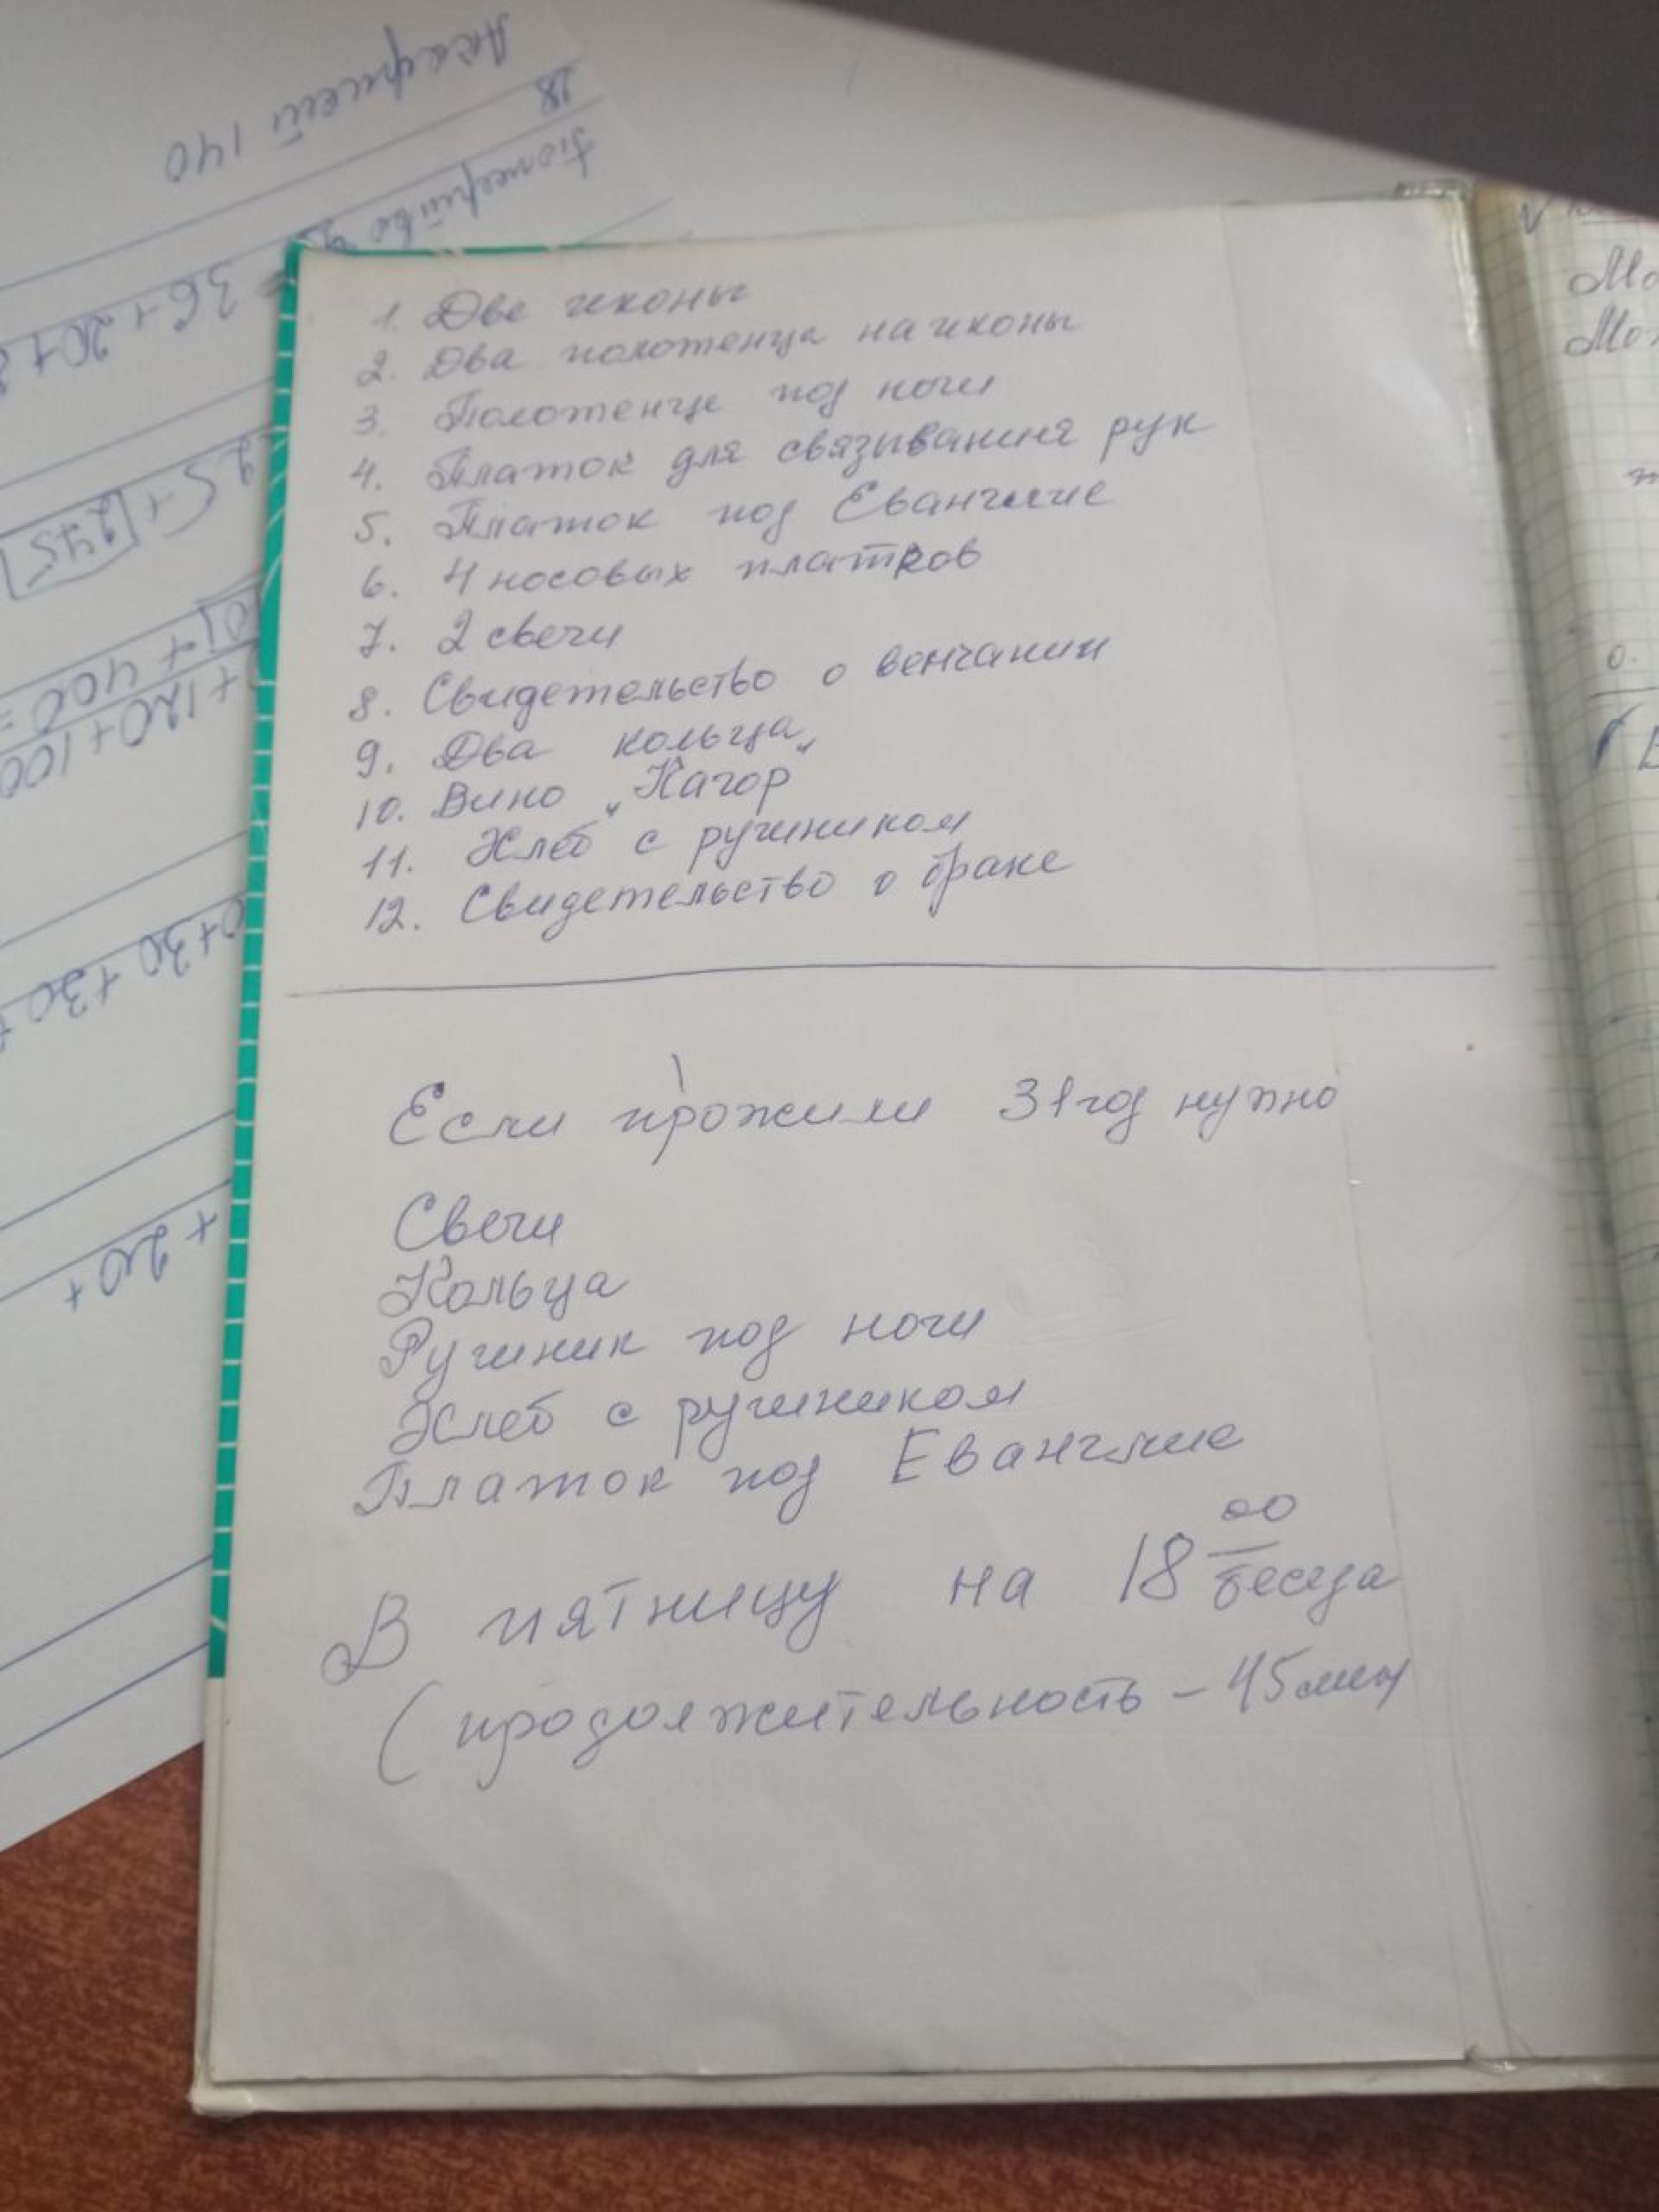 1. Две иконы
2. Два полотенца на иконы
3. Полотенце под ноги
4. Платок для связывания рук
5. Платок под Евангелие
6. 4 носовых платков
7. 2 свечи
8. Свидетельство о венчании
9. Два кольца
10. Вино „Кагор"
11. Хлеб с рушником
12. Свидетельство о браке
Если прожили 31 год нужно
Свечи
Кольца
Рушник под ноги
Хлеб с рушником
Платок под Евангелие
В пятницу на 18 00 беседа
(продолжительность – 45 мин
Акафист 140
18
= 36 + 20 +
25 + 245
+ 400 =
+ 120 + 100
+ 30 + 30 +
+ 20 +